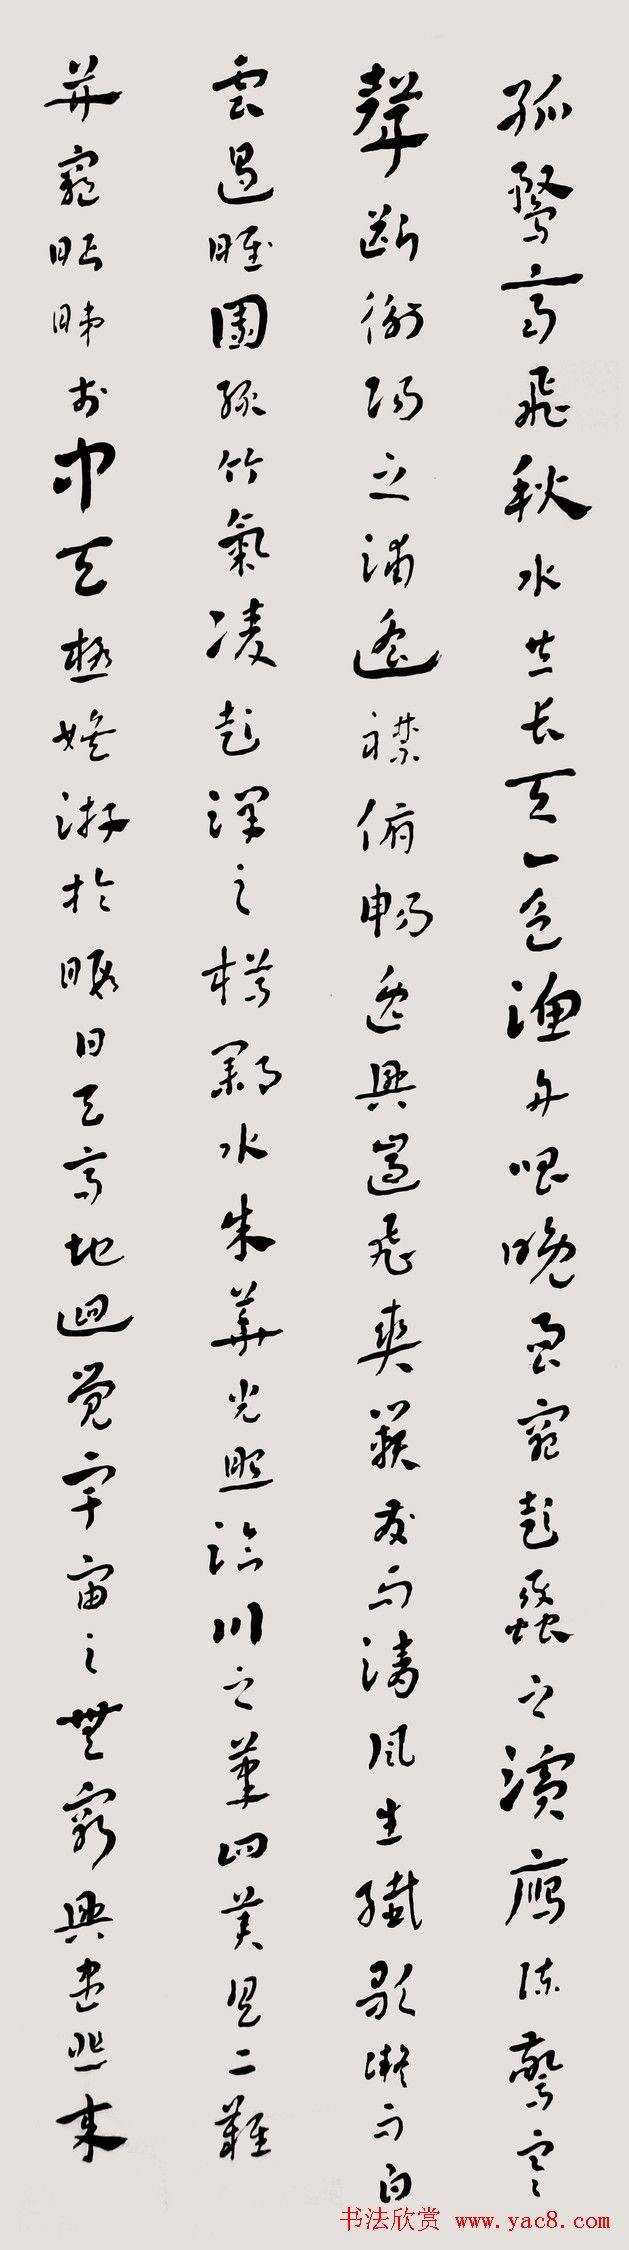 孤鶩高飛秋水共長天一色漁舟唱晚響窮彭蠡之濱鴈陣驚寒
聲斷衡陽之浦遙襟俯暢逸興遄飛爽籟發而清風生纖歌凝而白
雲遏睢園綠竹氣凌彭澤之樽鄴水朱華光照臨川之筆四美具二難
并窮眄睇於中天極娛游於暇日天高地迥覺宇宙之無窮興盡悲來
书法欣赏 www.yac8.com